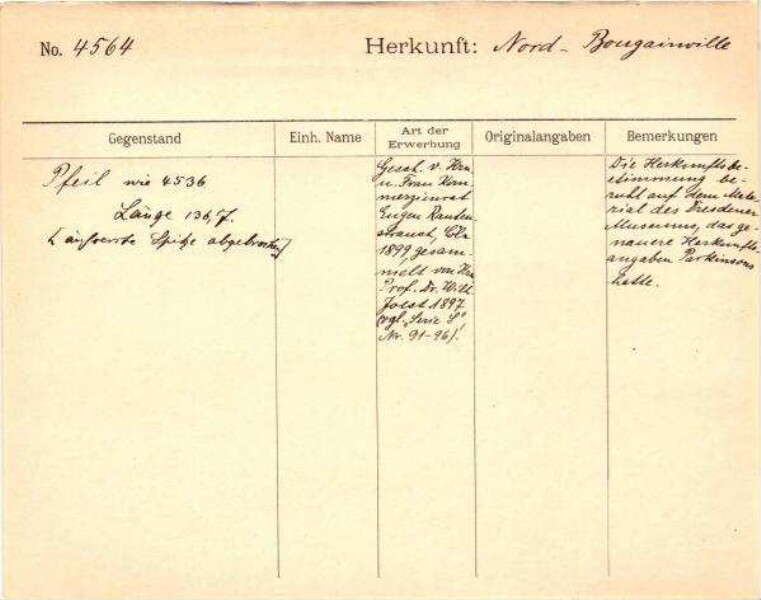 No. 4564
Herkunft: Nord-Bougainville
Gegenstand
Einh. Name
Art der
Erwerbung
Originalangaben
Bemerkungen
Pfeil wie 4536
Länge 136,7.
(äußerste Spitze abgebrochen)
Gesch. v. Hrn
u. Frau Kom-
merzienrat
Eugen Rauten-
strauch, Cln
1899, gesam-
melt von Hrn
Prof. Dr. W.
Joest 1897
(vgl. „Serie S"
Nr. 91-96).
Die Herkunftsbe-
stimmung be-
ruht auf dem Mate-
rial des Dresdener
Museums, das ge-
nauere Herkunfts-
angaben Parkinsons
hatte.